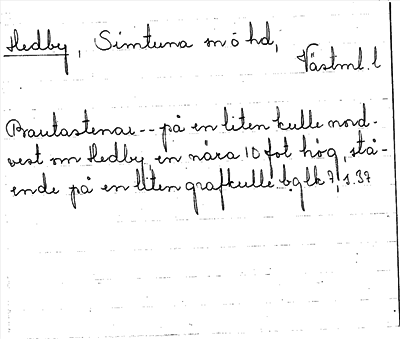 Hedby, Simtuna sn ö hd,
Västml. l
Brautastenar -- på en liten kulle nord-
vest om Hedby, en nära 10 fot hög, stå-
ende på en liten grafkulle. bglk 7, s. 37